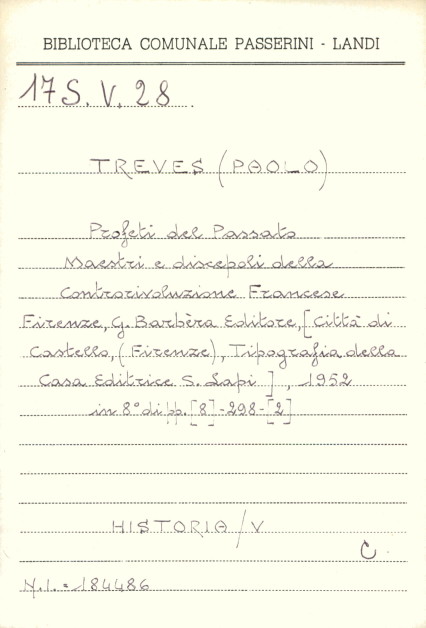 BIBLIOTECA COMUNALE PASSERINI - LANDI
17S. V. 28
TREVES (PAOLO)
Profeti del Passato
Maestri e discepoli della
Controrivoluzione Francese
Firenze, G. Barbèra Editore, [Città di
Castello, (Firenze), Tipografia della
Casa Editrice S. Lapi ] , 1952
in 8° di pp. [8]-298-[2]
HISTORIA/V
C.
N.I. = 184486